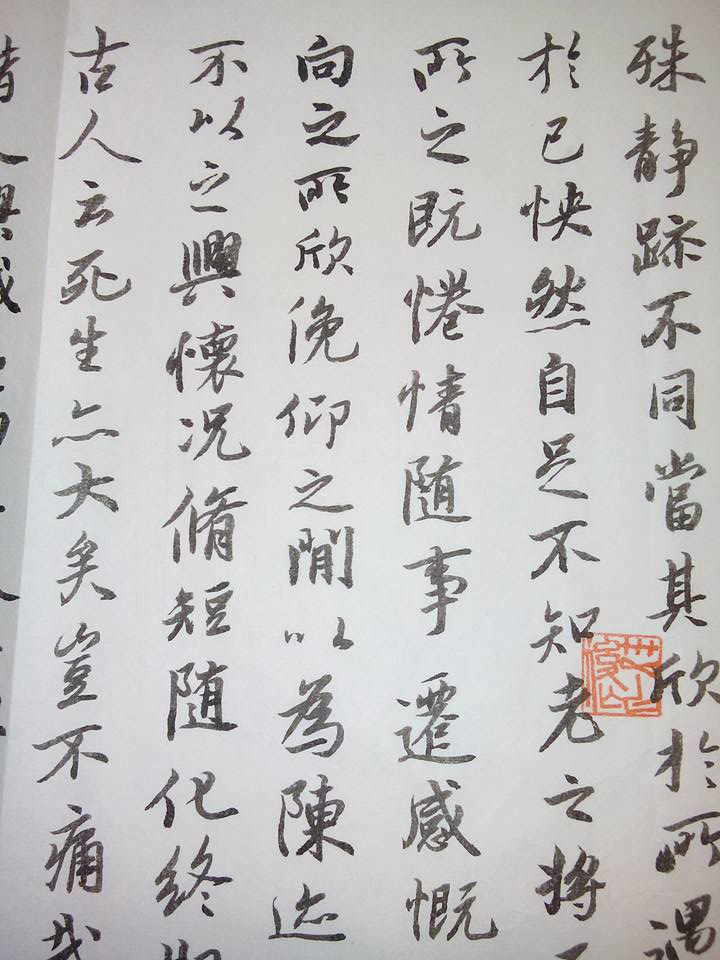 殊静跡不同當其欣於所遇
於已怏然自足不知老之將
所之既惓情随事遷感慨
向之所欣俛仰之閒以為陳迹
不以之興懷况脩短随化終期
古人云死生亦大矣豈不痛哉